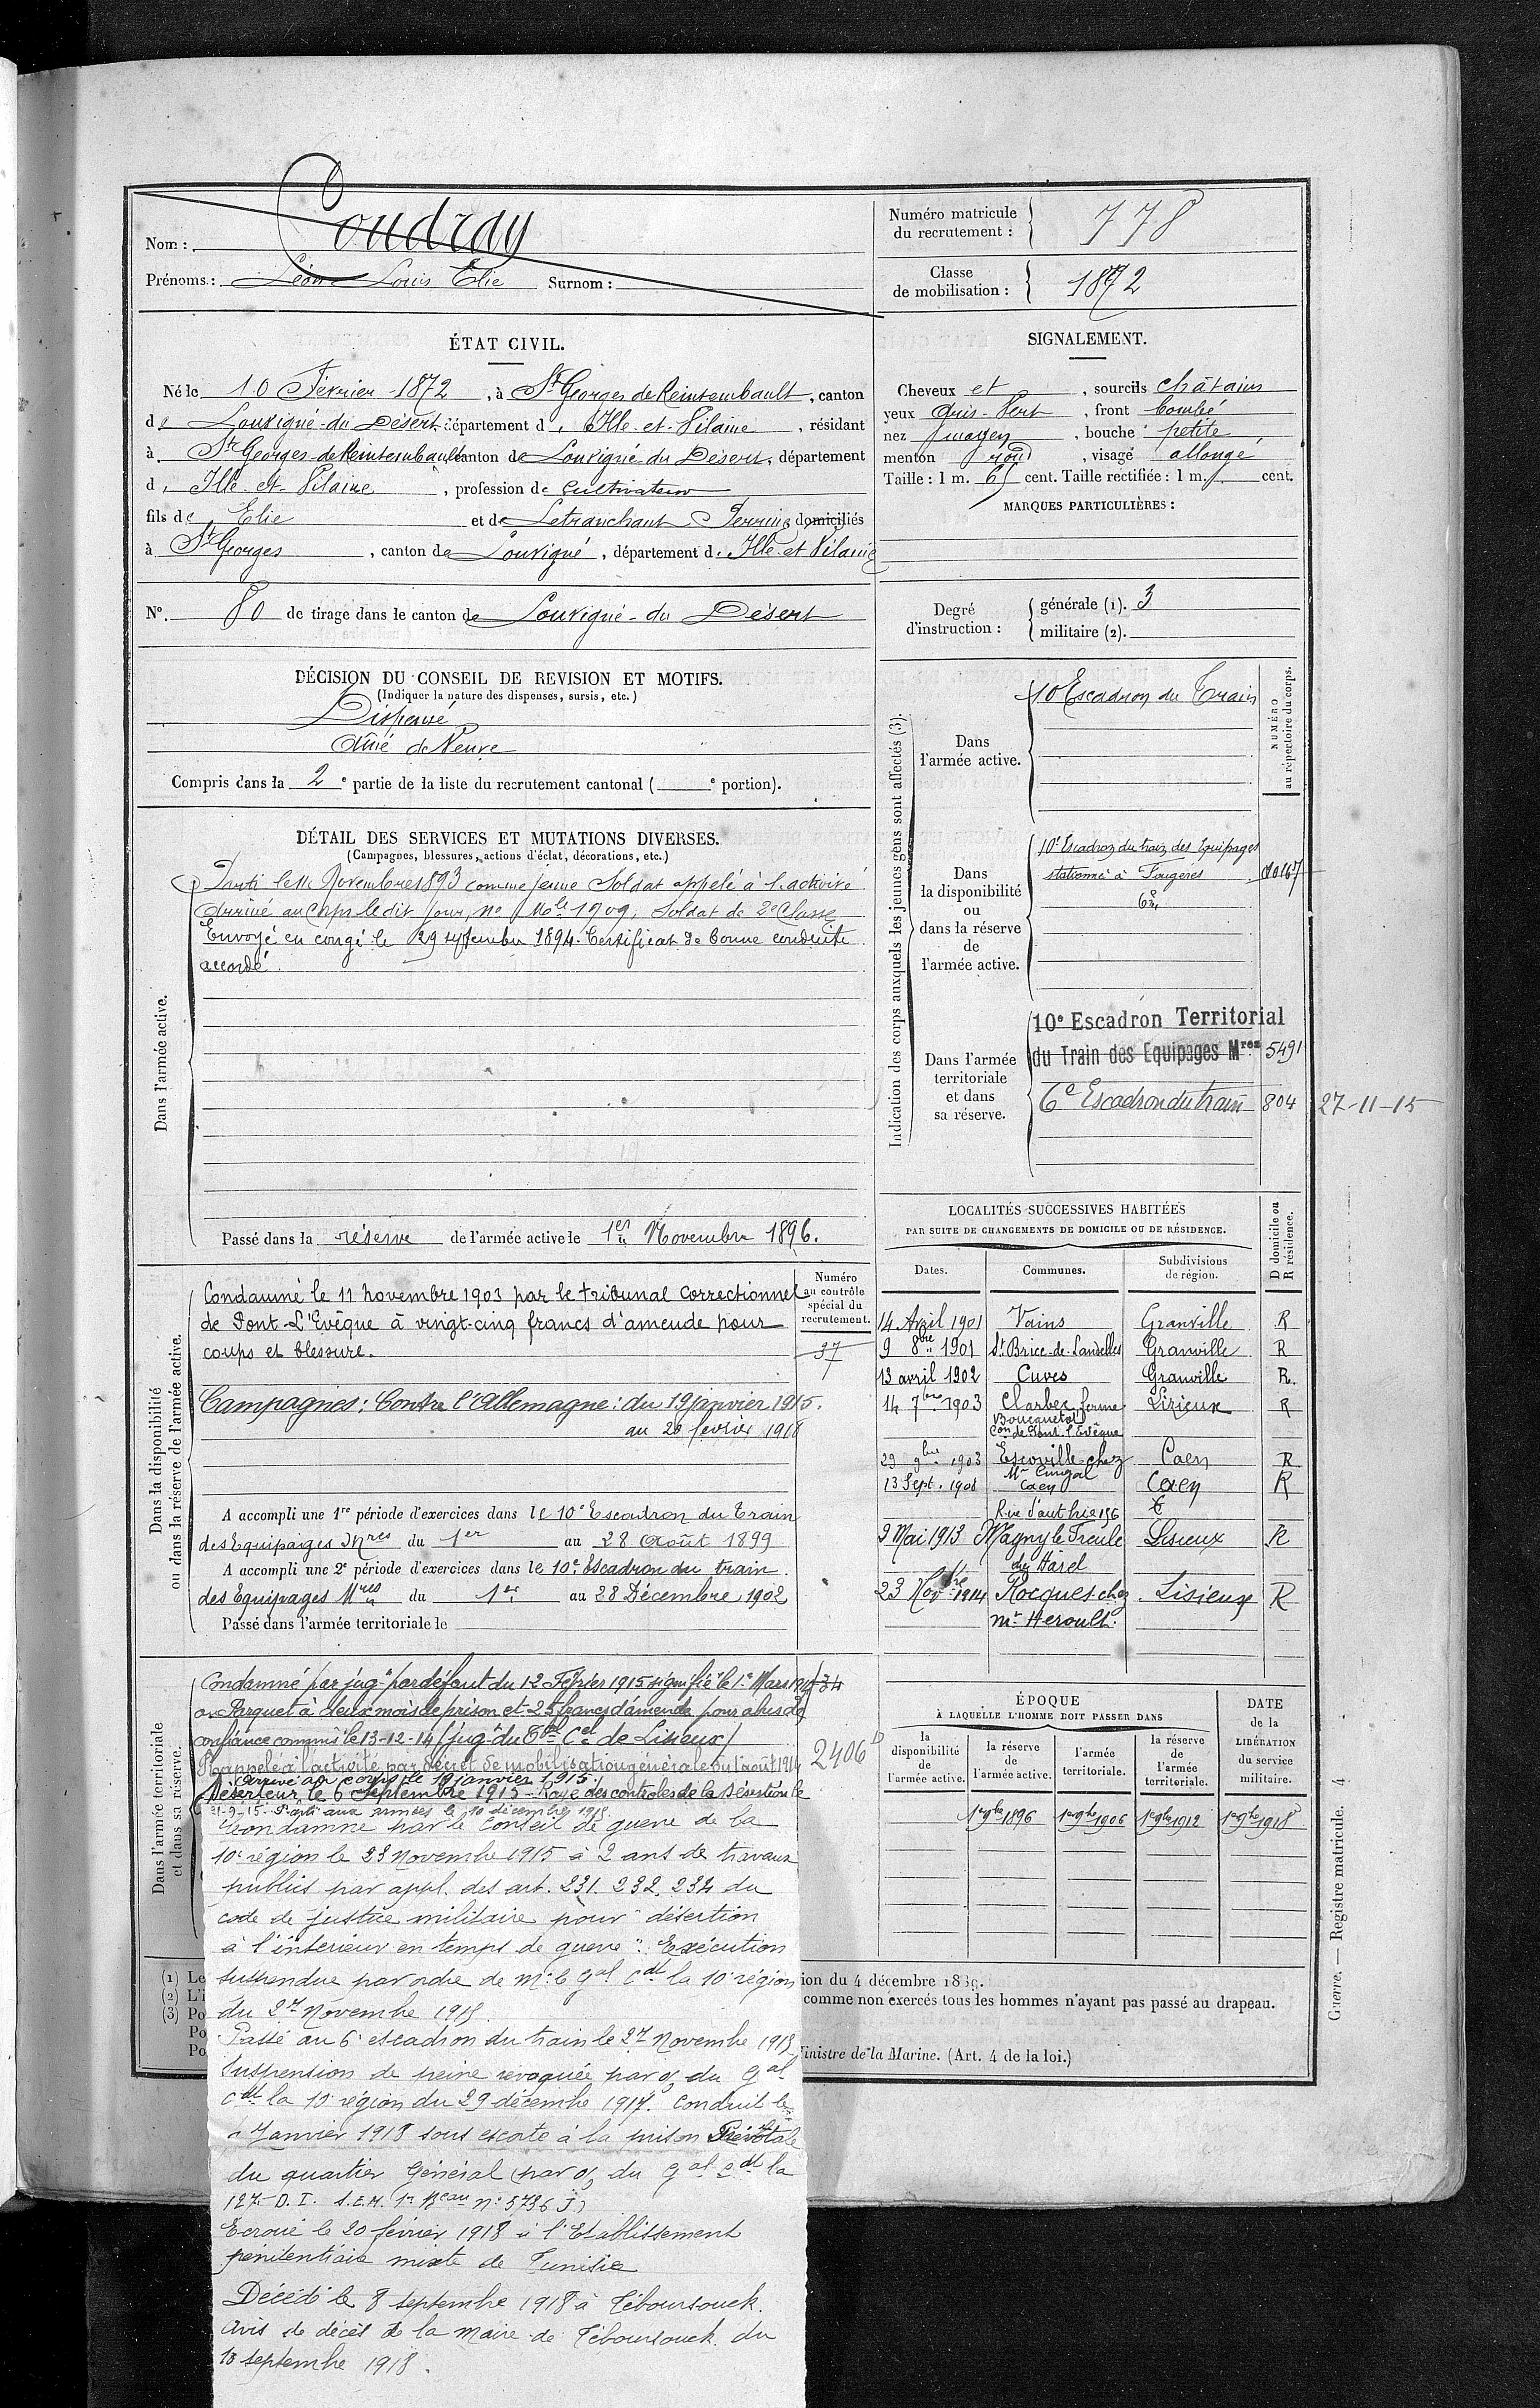 Nom : Coudray
Prénoms : Léon Louis Elie Surnom :
Numéro matricule du recrutement : 778
Classe de mobilisation : 1872
ÉTAT CIVIL.
Né le 10 Février 1872, à St Georges de Reintembault, canton
de Louvigné-du-Désert, département d'Ille-et-Vilaine, résidant
à St Georges-de-Reintembault, canton de Louvigné du Désert, département
d'Ille-et-Vilaine, profession de Cultivateur
fils de Elie et de Letranchant Perrine domiciliés
à St Georges, canton de Louvigné, département d'Ille et Vilaine
N° 80 de tirage dans le canton de Louvigné-du Désert
SIGNALEMENT.
Cheveux et, sourcils châtains
yeux Gris-Vert, front bombé
nez moyen, bouche petite
menton rond, visage allongé
Taille : 1 m. 65 cent. Taille rectifiée : 1 m. cent.
MARQUES PARTICULIÈRES :
Degré d'instruction : générale (1). 3
militaire (2).
DÉCISION DU CONSEIL DE REVISION ET MOTIFS.
(Indiquer la nature des dispenses, sursis, etc.)
Dispensé
Aîné de Veuve
Compris dans la 2e partie de la liste du recrutement cantonal ( e portion).
DÉTAIL DES SERVICES ET MUTATIONS DIVERSES.
(Campagnes, blessures, actions d'éclat, décorations, etc.)
Dans l'armée active.
Parti le 11 Novembre 1893 comme jeune Soldat appelé à l'activité
Arrivé au Corps le dit jour, No Mle 1909, Soldat de 2e Classe
Envoyé en congé le 29 septembre 1894. Certificat de bonne conduite
accordé.
Passé dans la réserve de l'armée active le 1er Novembre 1896.
Indication des corps auxquels les jeunes gens sont affectés (3).
NUMÉRO au répertoire du corps.
Dans l'armée active.
10 Escadron du Train
Dans la disponibilité ou dans la réserve de l'armée active.
10e Escadron du train des Equipages
stationné à Fougères
Dans l'armée territoriale et dans sa réserve.
10e Escadron Territorial
du Train des Equipages Mres 5491
6e Escadron du train 804 27-11-15
Dans la disponibilité ou dans la réserve de l'armée active.
Numéro au contrôle spécial du recrutement.
37
Condamné le 11 novembre 1903 par le tribunal Correctionnel
de Pont-L'Evêque à vingt-cinq francs d'amende pour
coups et blessure.
Campagnes : Contre l'Allemagne : du 19 janvier 1915.
au 20 fevrier 1918
A accompli une 1re période d'exercices dans le 10e Escadron du Train
des Equipages Mres du 1er au 28 Août 1899
A accompli une 2e période d'exercices dans le 10e Escadron du train
des Equipages Mres du 1er au 28 Décembre 1902
Passé dans l'armée territoriale le
LOCALITÉS SUCCESSIVES HABITÉES
PAR SUITE DE CHANGEMENTS DE DOMICILE OU DE RÉSIDENCE.
Dates. Communes. Subdivisions de région. D domicile ou R résidence.
14 Avril 1901 Vains Granville R
9 8bre 1901 St Brice-de-Landelles Granville R
13 avril 1902 Cuves Granville R.
14 7bre 1903 Clarbec ferme Lisieux R
Con de Pont l'Evêque
23 9bre 1903 Escoville chez Caen R
13 Sept. 1908 Caen Caen R
9 Mai 1913 Magny le Freule Lisieux R
23 Novbre 1914 Rocques chez Lisieux R
Mr Heroult.
Dans l'armée territoriale et dans sa réserve.
Condamné par jugt par défaut du 12 Février 1915 signifié le 1er Mars
au Parquet à deux mois de prison et 25 francs d'amende pour abus de
confiance commis le 13-12-14 (jugt du Tbal Cel de Lisieux)
Rappelé à l'activité par décret de mobilisation générale du 1 août 1914
Arrivé au corps le 19 janvier 1915.
Déserteur le 6 septembre 1915 - Rayé des controles de la désertion le
21-9-15. Parti aux armées le 10 décembre 1915.
Condamné par le Conseil de guerre de la
10e région le 23 novembre 1915 à 2 ans de travaux
publics par appl. des art. 231. 232. 234 du
code de justice militaire pour "désertion
à l'intérieur en temps de guerre". Exécution
suspendue par ordre de Mr le Gal Cdt la 10e région
du 27 Novembre 1915.
Passé au 6e escadron du train le 27 novembre 1915
Suspension de peine revoquée par o/ du Gal
Cdt la 10e région du 29 décembre 1917. Conduit le
Janvier 1918 sous escorte à la prison Prévôtale
du quartier Général (par o/ du Gal Cdt la
127e D. I. S.E.M. 1er Beau n° 5736 J)
Ecroué le 20 février 1918 à l'Etablissement
pénitentiaire mixte de Tunisie
Décédé le 8 septembre 1918 à Téboursouck.
Avis de décès de la Mairie de Téboursouck du
18 septembre 1918.
2406
ÉPOQUE
À LAQUELLE L'HOMME DOIT PASSER DANS
la disponibilité de l'armée active. la réserve de l'armée active. l'armée territoriale. la réserve de l'armée territoriale. DATE de la LIBÉRATION du service militaire.
1er 9bre 1896 1er 9bre 1906 1er 9bre 1912 1er 9bre 1918
(1) Le
(2) L'i
(3) Po
Po
Po
ion du 4 décembre 18
comme non exercés tous les hommes n'ayant pas passé au drapeau.
Ministre de la Marine. (Art. 4 de la loi.)
Guerre. — Registre matricule. 4